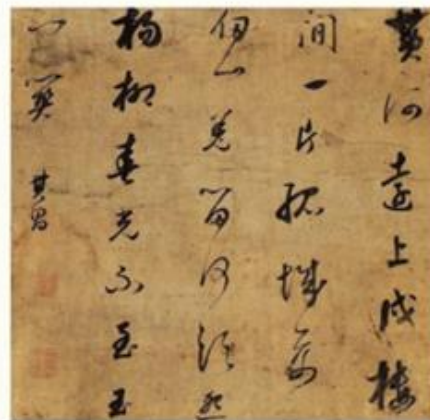 黃河遠上戍樓
間一片孤城萬
仞山羌笛何須怨
楊柳春光不至玉
門關 其昌